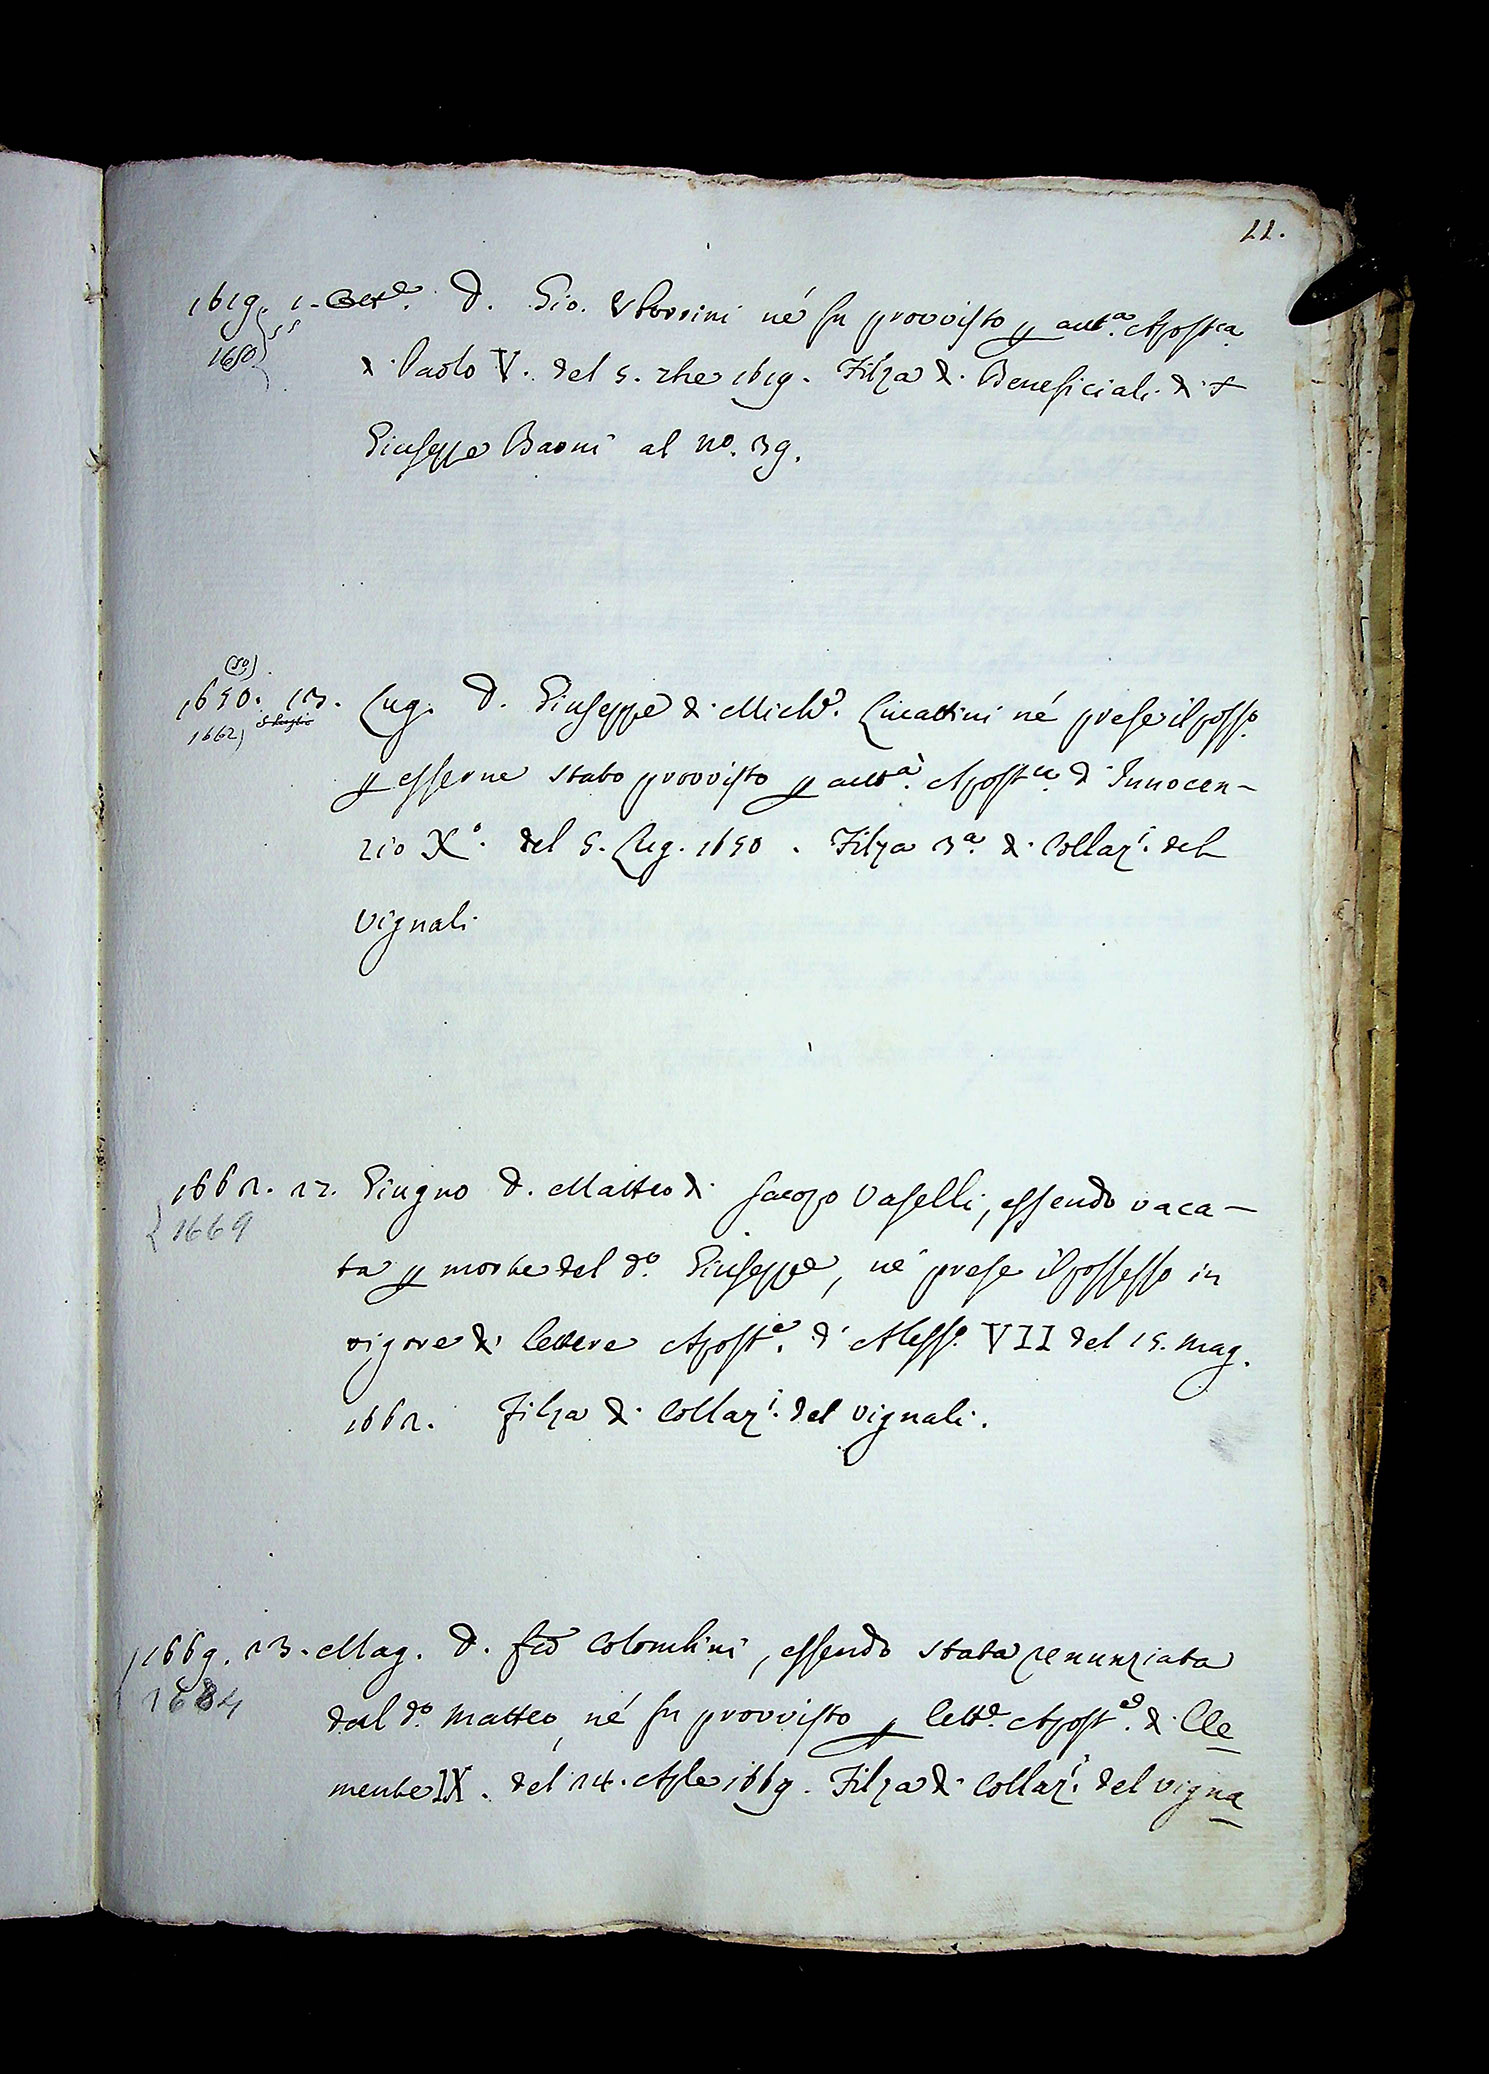 11.
1619. 1. Ott.e D. Gio. Uborsini né fu provvisto p autt.a Apost.ca
1650
di Paolo V. del 5. 7bre 1619. Filza di Beneficiali di S
Giuseppe Baoni al No. 39.
(50)
1650. 13. Lug. D. Giuseppe di Mich.e Lucattini né prese il posso.
1662 5 luglio
p esserne stato provvisto p autt.a Apost.ca di Innocen-
zio X.o del 5. Lug. 1650. Filza 3.a di Collaz.i del
Vignali
1662. 22. Giugno D. Matteo di Jacopo Vaselli, essendo vaca-
1669
ta p morte del do. Giuseppe, né prese il possesso in
vigore di lettere Apost.e di Aless.o VII del 15. Mag.
1662. Filza di Collaz.i del Vignali.
1669. 23. Mag. D. Colombini, essendo stata renunziata
1684
dal do. Matteo, né fu provvisto p lett.e Apost.e di Cle
mente IX. del 24. Aple 1669. Filza di Collaz.i del Vigna